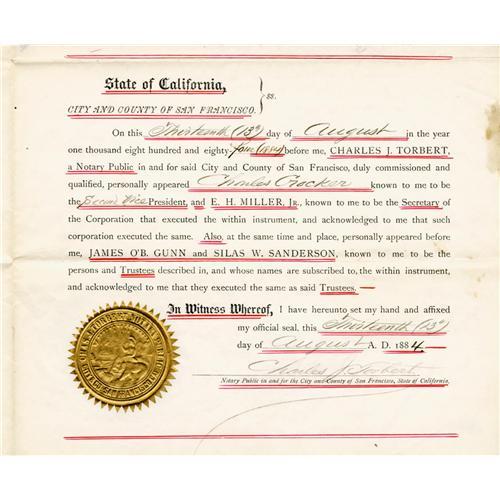 State of California, } ss.
CITY AND COUNTY OF SAN FRANCISCO.
On this Thirteenth (13th) day of August in the year
one thousand eight hundred and eighty-four (1884) before me, CHARLES J. TORBERT,
a Notary Public in and for said City and County of San Francisco, duly commissioned and
qualified, personally appeared Charles Crocker known to me to be
the Second Vice President, and E. H. MILLER, JR., known to me to be the Secretary of
the Corporation that executed the within instrument, and acknowledged to me that such
corporation executed the same. Also, at the same time and place, personally appeared before
me, JAMES O'B. GUNN and SILAS W. SANDERSON, known to me to be the
persons and Trustees described in, and whose names are subscribed to, the within instrument,
and acknowledged to me that they executed the same as said Trustees.
In Witness Whereof, I have hereunto set my hand and affixed
my official seal, this Thirteenth (13th)
day of August A. D. 1884.
Charles J. Torbert
Notary Public in and for the City and County of San Francisco, State of California.
CHAS. J. TORBERT NOTARY PUBLIC